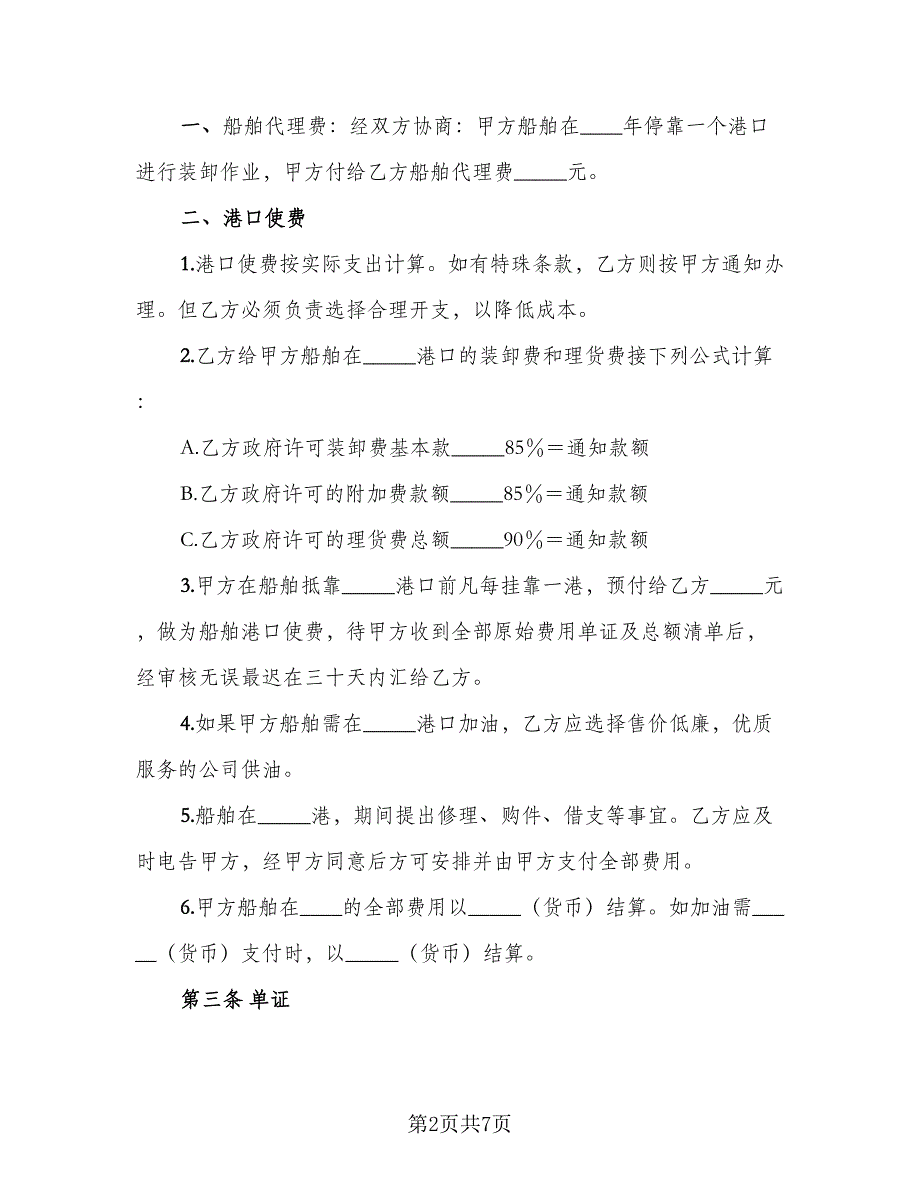 一、船舶代理费：经双方协商：甲方船舶在____年停靠一个港口
进行装卸作业，甲方付给乙方船舶代理费_____元。
二、港口使费
1.港口使费按实际支出计算。如有特珠条款，乙方则按甲方通知办
理。但乙方必须负责选择合理开支，以降低成本。
2.乙方给甲方船舶在_____港口的装卸费和理货费接下列公式计算
：
A.乙方政府许可装卸费基本款_____85％＝通知款额
B.乙方政府许可的附加费款额_____85％＝通知款额
C.乙方政府许可的理货费总额_____90％＝通知款额
3.甲方在船舶抵靠_____港口前凡每挂靠一港，预付给乙方_____元
，做为船舶港口使费，待甲方收到全部原始费用单证及总额清单后，
经审核无误最迟在三十天内汇给乙方。
4.如果甲方船舶需在_____港口加油，乙方应选择售价低廉，优质
服务的公司供油。
5.船舶在_____港，期间提出修理、购件、借支等事宜。乙方应及
时电告甲方，经甲方同意后方可安排并由甲方支付全部费用。
6.甲方船舶在____的全部费用以_____（货币）结算。如加油需___
__（货币）支付时，以_____（货币）结算。
第三条 单证
第2页共7页